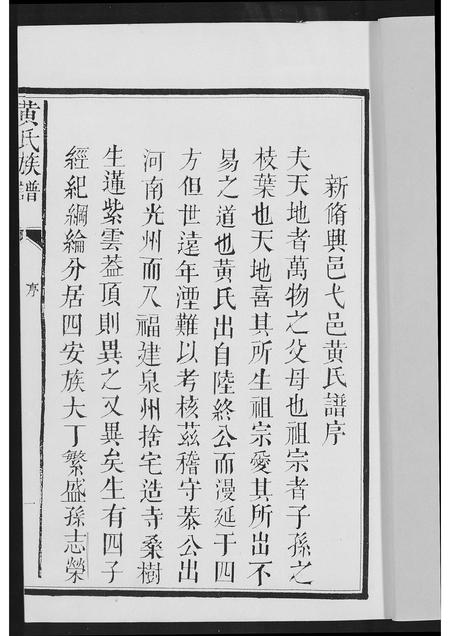 新脩興邑弋邑黃氏譜序
夫天地者萬物之父母也祖宗者子孫之
枝葉也天地喜其所生祖宗愛其所出不
易之道也黃氏出自陸終公而漫延于四
方但世遠年湮難以考核茲稽守恭公出
河南光州而入福建泉州捨宅造寺桑樹
生蓮紫雲葢頂則異之又異矣生有四子
經紀綱綸分居四安族大丁繁盛孫志榮
黃氏族譜
序
一